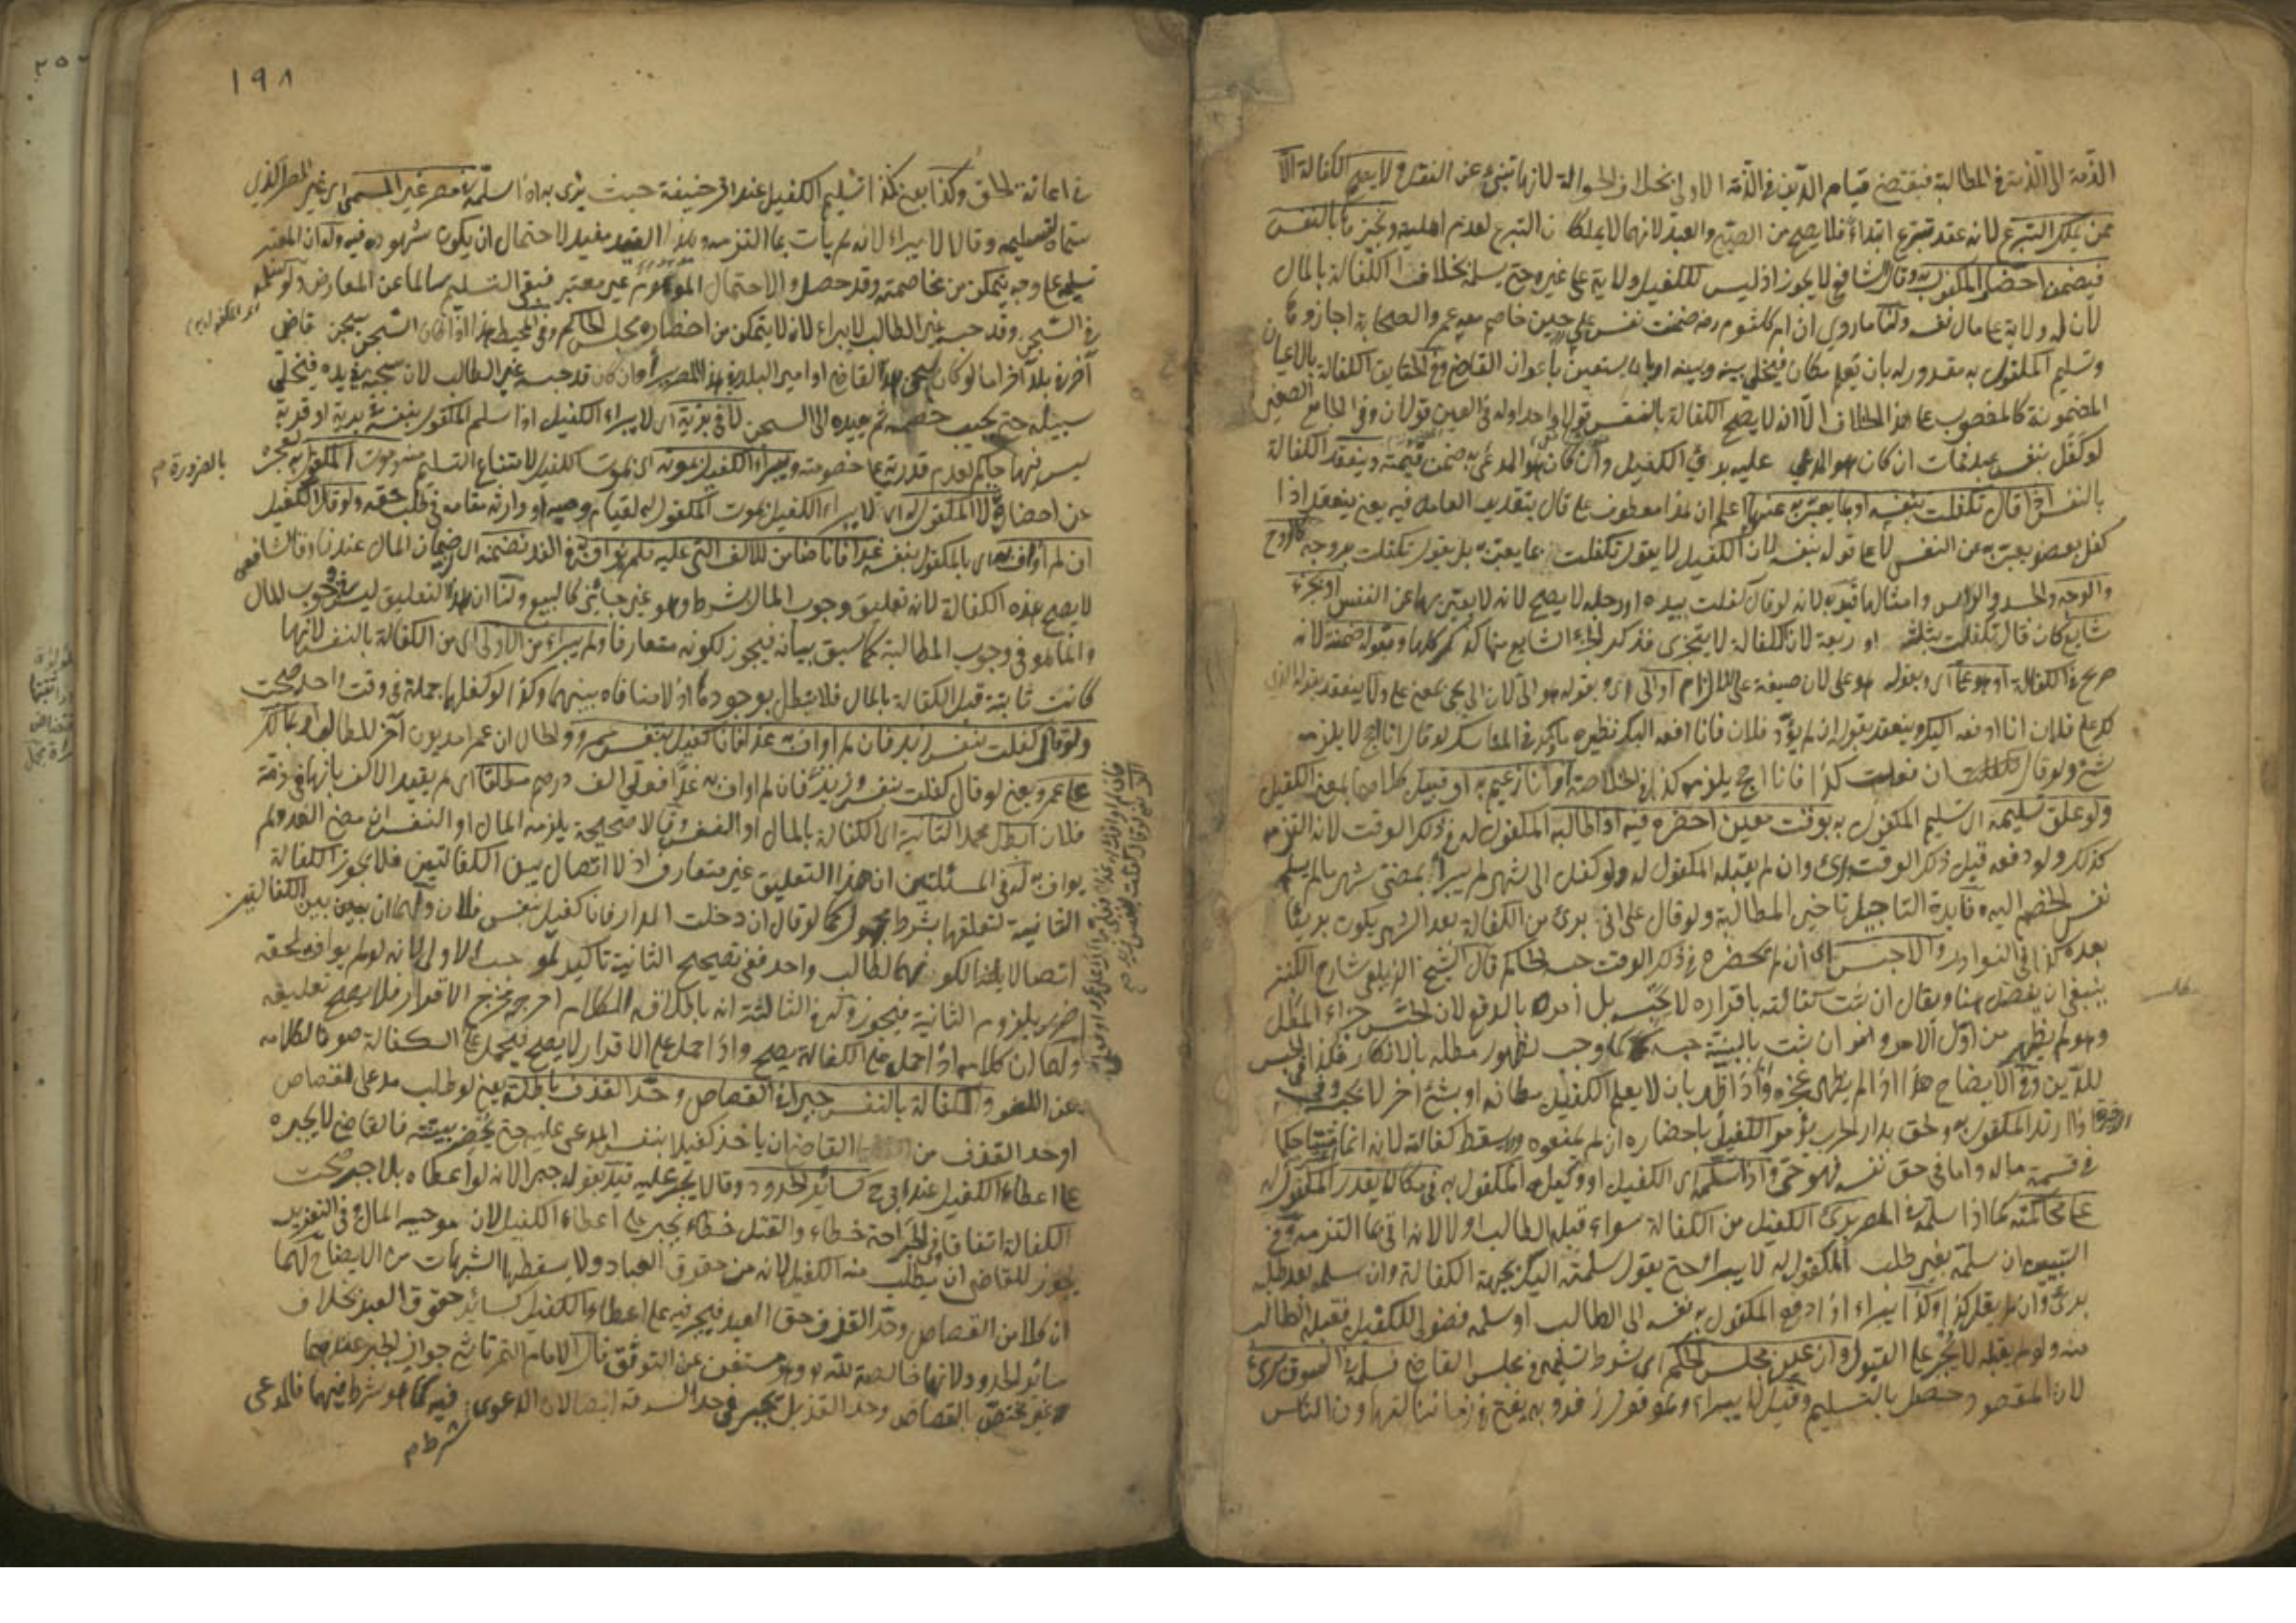 الذمة الى الذمة في المطالبة فيقتضي قيام الدين في الذمة الاولى بخلاف الحوالة لانها تنبئ عن النقل ولا يصح الكفالة الا
ممن يملك التبرع لانه عقد تبرع ابتداء فلا يصح من الصبي والعبد لانهما لا يملكان التبرع لعدم اهليته وتجيزها بالنفس
فيضمن احضار المكفول به وقال الشافعي لا يجوز اذ ليس للكفيل ولاية على غيره حتى يسلمه بخلاف الكفالة بالمال
لان له ولاية على مال نفسه ولنا ما روي ان ام كلثوم رضه ضمنت نفس علي حين خاصم معه عمر والصحابة اجازوها
وتسليم المكفول به مقدور له بان يعلم مكانه فيخلي بينه وبينه او بان يستعين باعوان القاضي وفي الحقايق الكفالة بالاعيان
المضمونة كالمغصوب على هذا الخلاف الا انه لا يصح الكفالة بالنفس قولا واحدا وله في العين قولان وفي الجامع الصغير
لو كفل بنفس عبد فمات ان كان هو المدعى عليه برئ الكفيل وان كان هو المدعى به ضمن قيمته وينعقد الكفالة
بالنفس اذا قال تكفلت بنفسه او بما يعبر به عنها اعلم ان هذا معطوف على قال بتقدير العامل فيه يعني ينعقد اذا
كفل بعضو يعبر به عن النفس لا على قوله بنفسه لان الكفيل لا يقول تكفلت بما يعبر به بل يقول تكفلت بروحه كالروح
والوجه والجسد والراس وامثالها قيد به لانه لو قال كفلت بيده او رجله لا يصح لانه لا يعبر بها عن النفس او بجزء
شايع كان قال تكفلت بثلثه او ربعه لان الكفالة لا يتجزى فذكر الجزء الشايع منها كذكر كلها وبقوله ضمنته لانه
صريح في الكفالة او هو علي اي وبقوله هو علي لان صيغة علي للالزام او الي اي وبقوله هو الي لان الى يجئ بمعنى على ولا ينعقد بقوله الذي
لك على فلان انا ادفعه اليك وينعقد بقوله ان لم يؤد فلان فانا ادفعه اليك نظيره ما ذكر في المناسك لو قال انا احج لا يلزمه
شئ ولو قال ان فعلت كذا فانا احج يلزمه كذا في الخلاصة او انا زعيم به او قبيل كلاهما بمعنى الكفيل
ولو علق تسليمه اي تسليم المكفول به بوقت معين احضره فيه اذا طالبه المكفول له في ذلك الوقت لانه التزمه
كذلك ولو دفعه قبل ذلك الوقت برئ وان لم يقبله المكفول له ولو كفل الى شهر لم يبرأ بمضي شهر ما لم يسلم
نفس الخصم اليه وفايدة التاجيل تاخير المطالبة ولو قال على اني برئ من الكفالة بعد الشهر يكون بريئا
بعده كذا في النوادر والا حبس اي ان لم يحضره في ذلك الوقت حبسه الحاكم قال الشيخ الزيلعي شارح الكنز
ينبغي ان يفصل هنا ويقال ان ثبت كفالته باقراره لا يحبسه بل امره بالدفع لان الحبس جزاء المطل
وهو لم يظهر من اول الامر وانه ان ثبت بالبينة حبسه كما وجب لظهور مطله بالانكار فكذا في الحبس
للدين وفي الايضاح هذا اذا لم يظهر عجزه واذا ظهر بان لا يعلم الكفيل مكانه او بشئ آخر لا يحبس وفي
واذا ارتد المكفول به ولحق بدار الحرب يؤمر الكفيل باحضاره ان لم يمنعوه ولا يسقط كفالته لانه انما مات حكما
في قسمة ماله واما في حق نفسه فهو حي واذا سلمه اي الكفيل او وكيله المكفول به في مكان يقدر المكفول له
على محاكمته كما اذا سلمه في المصر برئ الكفيل من الكفالة سواء قبله الطالب او لا لانه اتى بما التزمه وفي
التبيين ان سلمه بغير طلب المكفول له لا يبرأ حتى يقول سلمته اليك بجهة الكفالة وان سلمه بعد طلبه
برئ وان لم يقل كذا وكذا يبراء اذا دفع المكفول به نفسه الى الطالب او سلمه فضولي للكفيل فقبله الطالب
منه ولو لم يقبله لا يجبر على القبول وان عين مجلس الحاكم اي شرط تسليمه في مجلس القاضي فسلمه في السوق برئ
لان المقصود حصل بالتسليم وقيل لا يبراء وهو قول زفر وبه يفتى في زماننا لتهاون الناس
١٩٨
في اعانة الحق وكذا يعني كذا تسليم الكفيل عند ابي حنيفة حيث يبرئ به اذا سلمه في مصر غير المسمى اي غير المصر الذي
سماه لتسليمه وقالا لا يبراء لانه لم يأت بما التزمه وهذا القيد مفيد لاحتمال ان يكون شهوده فيه وله ان المعتبر
تسليمه على وجه يتمكن من مخاصمته وقد حصل والاحتمال الموهوم غير معتبر فبقي التسليم سالما عن المعارض ولو سلمه
في السجن وقد حبسه غير الطالب لا يبراء لانه لا يتمكن من احضاره مجلس الحاكم وفي المحيط هذا اذا كان السجن سجن قاضي
آخر في بلد آخر اما لو كان سجن هذا القاضي او امير البلد في هذا المصر يبرأ وان كان قد حبسه غير الطالب لان سجنه في يده فيخلي
سبيله حتى يجيب خصمه ثم يعيده الى السجن لا في برية اي لا يبراء الكفيل اذا سلم المكفول بنفسه في برية او قرية
ليس فيها حاكم لعدم قدرته على خصومته ويبراء الكفيل بموته اي بموت الكفيل لامتناع التسليم منه وموت المكفول به لعجزه بالضرورة
عن احضاره لا المكفول له اي لا يبراء الكفيل بموت المكفول له لقيام وصيه او وارثه مقامه في طلب حقه ولو قال الكفيل
ان لم اواف به اي بالمكفول بنفسه غدا فانا ضامن للالف التي عليه فلم يواف به في الغد تضمنه اي ضمان المال عندنا وقال الشافعي
لا يصح هذه الكفالة لانه تعليق وجوب المال بشرط وهو غير جائز كالبيع ولنا ان هذا التعليق ليس في وجوب المال
وانما هو في وجوب المطالبة كما سبق بيانه فيجوز لكونه متعارفا ولم يبراء من الاولى اي من الكفالة بالنفس لانها
كانت ثابتة قبل الكفالة بالمال فلا تبطل بوجودها اذ لا منافاة بينهما وكذا لو كفل بهما جملة في وقت واحد صحت
ولو قال كفلت بنفس زيد فان لم اواف به غدا فانا كفيل بنفس عمرو والحال ان عمرا مديون آخر للطالب او بما لك
على عمرو يعني لو قال كفلت بنفس زيد فان لم اواف به غدا فعلي الف درهم مطلقا اي لم يقيد الالف بانها في ذمة
فلان ابطل محمد الثانية اي الكفالة بالمال او النفس وقالا صحيحة يلزمه المال او النفس ان مضى الغد ولم
يواف به له في المسئلتين ان هذا التعليق غير متعارف اذ لا اتصال بين الكفالتين فلا يجوز الكفالة
الثانية لتعلقها بشرط مجهول كما لو قال ان دخلت الدار فانا كفيل بنفس فلان ولهما ان بين الكفالتين
اتصالا بهذا لكونهما لطالب واحد ففي تصحيح الثانية تاكيد لموجب الاولى لانه لو لم يوافه لحقه
ضرر بلزوم الثانية فيجوز وله في الثالثة انه باطلاقه الكلام اخرجه مخرج الاقرار فلا يصح تعليقه
ولهما ان كلامه اذا حمل على الكفالة يصح واذا حمل على الاقرار لا يصح فيحمل على الكفالة صونا لكلامه
عن اللغو والكفالة بالنفس جبرا في القصاص وحد القذف باطلة يعني لو طلب مدعي القصاص
او حد القذف من القاضي ان ياخذ كفيلا بنفس المدعى عليه حتى يحضر بينته فالقاضي لا يجبره
على اعطاء الكفيل عند ابي ح كسائر الحدود وقالا يجبر عليه قيد بقوله جبرا لانه لو اعطاه بلا جبر صحت
الكفالة اتفاقا وفي الجراحة خطاء والقتل خطاء يجبر على اعطاء الكفيل لان موجبه المال وفي التعزير
يجوز للقاضي ان يطلب منه الكفيل لانه من حقوق العباد ولا يسقطها الشبهات من الايضاح لهما
ان كلا من القصاص وحد القذف حق العبد فيجبر فيه على اعطاء الكفيل كسائر حقوق العبد بخلاف
سائر الحدود لانها خالصة لله وهو مستغن عن التوثق قال الامام التمرتاشي جواز الجبر عندهما
غير مختص بالقصاص وحد القذف بل يجبر في حد السرقة ايضا لان الدعوى فيه كما هو شرط فيهما فالمدعى